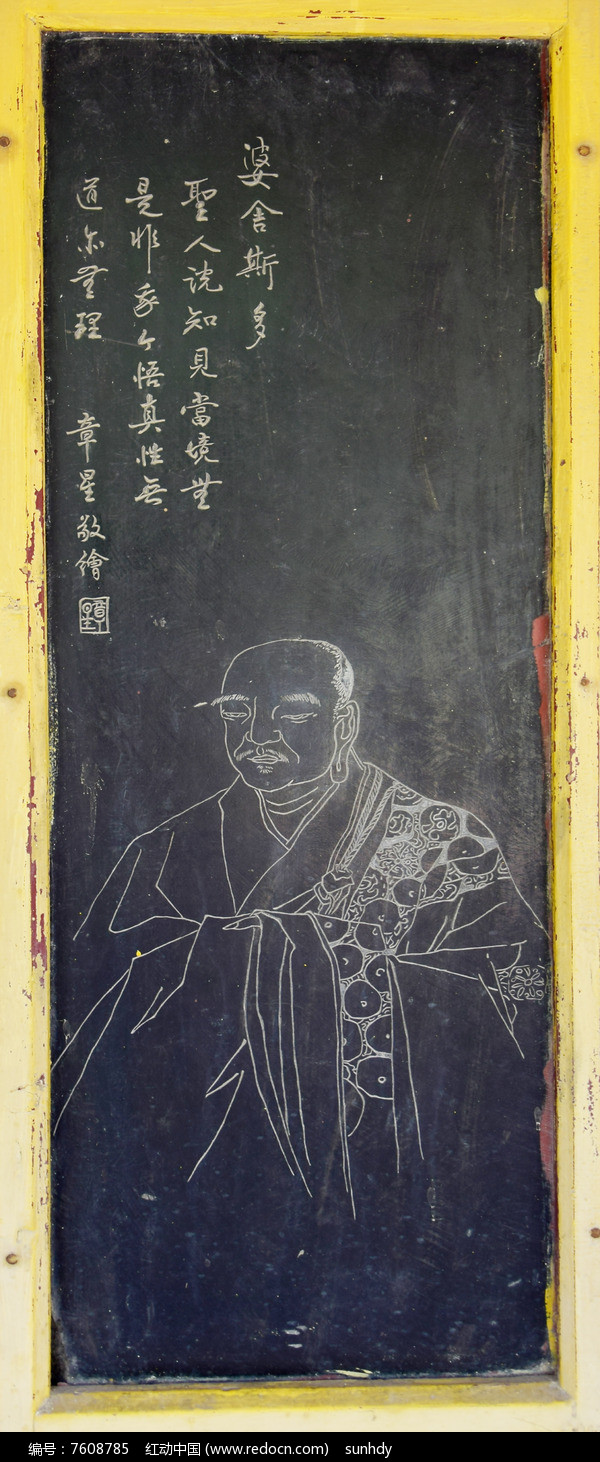 婆舍斯多
聖人说知見當境無
是非我今悟真性無
道亦無理 章星敬繪
编号：7608785 红动中国 (www.redocn.com) sunhdy